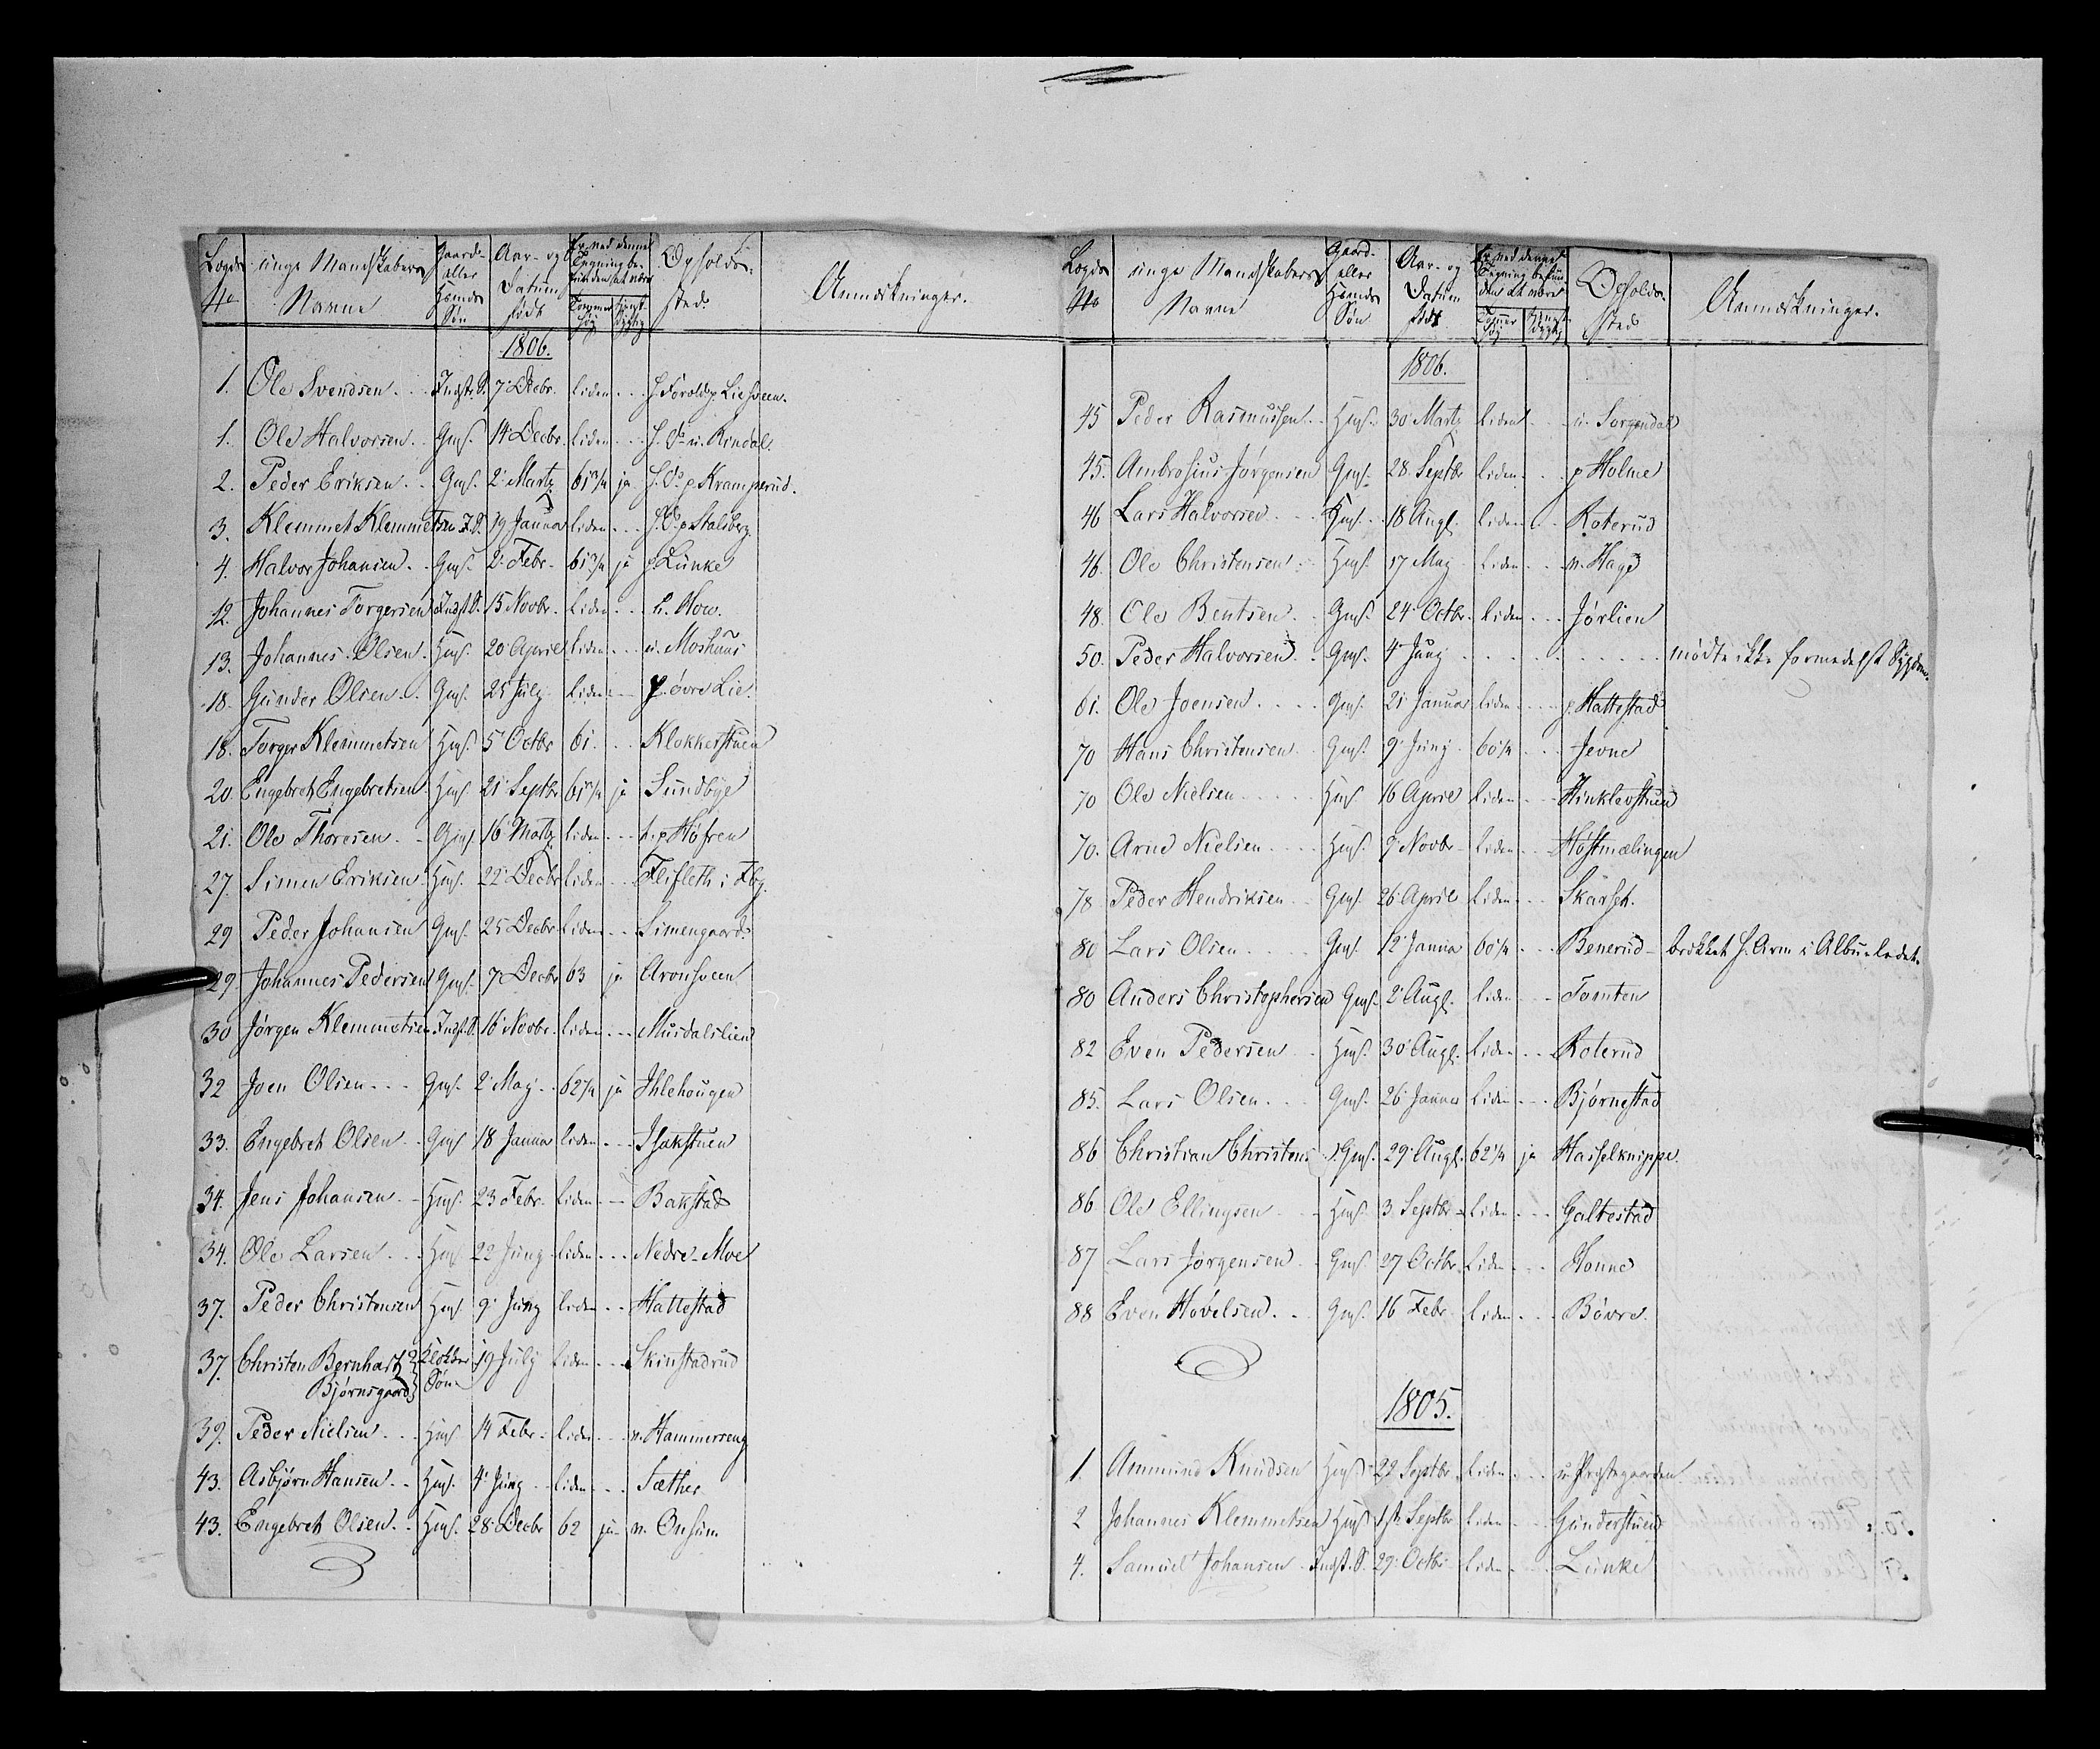 Lægds No | unge Mandskabers Navne | Gaard- eller Huusmds Søn | Aar- og Datum født | Er ved denne Tegning befunden at være Tommer høj | Tjenstdygtig | Opholdssted | Anmærkninger.
1806.
1. Ole Svendsen . . Indst. S. 7 Decbr. liden . . . p Liesveen.
1. Ole Halvorsen . . GmS. 14 Decbr. liden . . . u. Rindal.
2. Peder Eriksen . . GmS. 2 Martz 61 3/4 ja p Kramperud.
3. Klemmet Klemmetsen I. S. 19 Januar liden . . . p Stalsberg.
4. Halvor Johansen . . GmS. 2 Febr. 61 3/4 ja p Lunke
12. Johannes Torgersen Indst. S. 15 Novbr. liden . . .
13. Johannes Olsen . HmS. 20 April liden . . . u. Moshuus
18. Gunder Olsen . . GmS. 25 July liden . . . p. øvre Lie.
18. Torger Klemmetsen HmS. 5 Octbr 61. . . Klokkerstuen
20. Engebret Engebretsen HmS 21 Septbr 61 1/4 ja Sundbye
21. Ole Thoresen . . GmS. 16 Martz liden . . . p Høfren
27. Simen Eriksen HmS. 22 Decbr liden . . Flifleth i Fbg.
29 Peder Johansen GmS. 25 Decbr liden . . . Simengaard.
29. Johannes Pedersen GmS. 7 Decbr 63 ja Aronsveen
30 Jørgen Klemmetsen Indst. S. 16 Novbr. liden . . . Musdalslien
32 Joen Olsen . . . GmS. 2 May . . 62 1/4 ja Ihlehougen
33. Engebret Olsen . . GmS 18 Janua liden . . . Isakstuen
34. Jens Johansen . . HmS. 23 Febr. liden . . . Bakstad
34. Ole Larsen . . . HmS 22 Juny liden . . . Nedre-Moe
37. Peder Christensen HmS 9 Juny liden . . . Hattestad
37. Christen Bernhart Bjørnsgaard Klokker Søn 19 July liden . . . Skinstadrud
39. Peder Nielsen . . . HmS 14 Febr. liden . . . n. Hammerseng
43. Asbjørn Hansen . . HmS. 4 Juny . . liden . . . Sæther
43. Engebret Olsen . . HmS. 28 Decbr 62 ja n. Onsum
Lægds No | unge Mandskabers Navne | Gaard- eller Huusmds Søn | Aar- og Datum født | Er ved denne Tegning befunden at være Tommer høj | Tjenstdygtig | Opholdssted | Anmærkninger.
1806.
45 Peder Rasmussen . . HmS. 30 Martz liden . . u. Sorgendal
45. Ambrosius Jørgensen GmS. 28 Septbr liden . . . p Holme
46 Lars Halvorsen . . HmS. . . 18 Augl. liden . . . Roterud
46. Ole Christensen . . HmS. 17 May liden . . . n. Hage
48. Ole Bentsen . . GmS. 24 Octbr. liden . . . Jørlien
50. Peder Halvorsen . . GmS. 4 Juny . . . . . . . . . . mødte ikke formedelst Sygdom.
61. Ole Joensen . . . . GmS. 21 Januar liden . . . p. Hattestad
70 Hans Christensen . GmS. 9 Juny . 60 1/4 . . . Jevne
70 Ole Nielsen . . . . . HmS 16 April liden . . . Hinklevstuen
70. Arne Nielsen . . . . HmS. 9 Novbr liden . . . Høstmælingen
78 Peder Hendriksen . . GmS. 26 April liden . . . Skarset.
80 Lars Olsen . . . . . GmS. 12 Janua 60 1/4 . . . Benerud brækket h. Arm i Albueledet.
80 Anders Christophersen GmS. 2 Augl. liden . . . Tomten
82 Even Pedersen . . HmS. 30 Augl. liden . . . Roterud
85. Lars Olsen . . . GmS. 26 Januar liden . . . Bjørnestad
86 Christian Christens . GmS. 29 Augl. 62 1/4 ja Hasselknippe.
86 Ole Ellingsen . . HmS. 3 Septbr liden . . . Galtestad
87 Lars Jørgensen . . GmS. 27 Octbr liden . . . Honne
88 Even Høvelsen . . GmS. 16 Febr. liden . . . Bøvre.
1805.
1. Ammund Knudsen HmS 22 Septbr. liden . . . u. Præstegaarden.
2 Johannes Klemmetsen HmS 1ste Septbr liden . . . Gunderstuen
4. Samuel Johansen Indst. S. 29 Octbr liden . . . Lunke